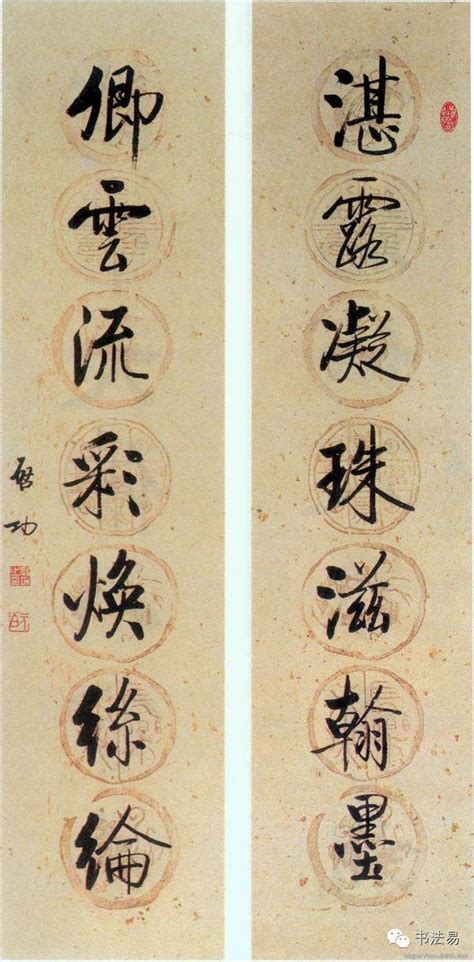 湛露凝珠滋翰墨
卿雲流彩焕絲綸
啓功
书法易